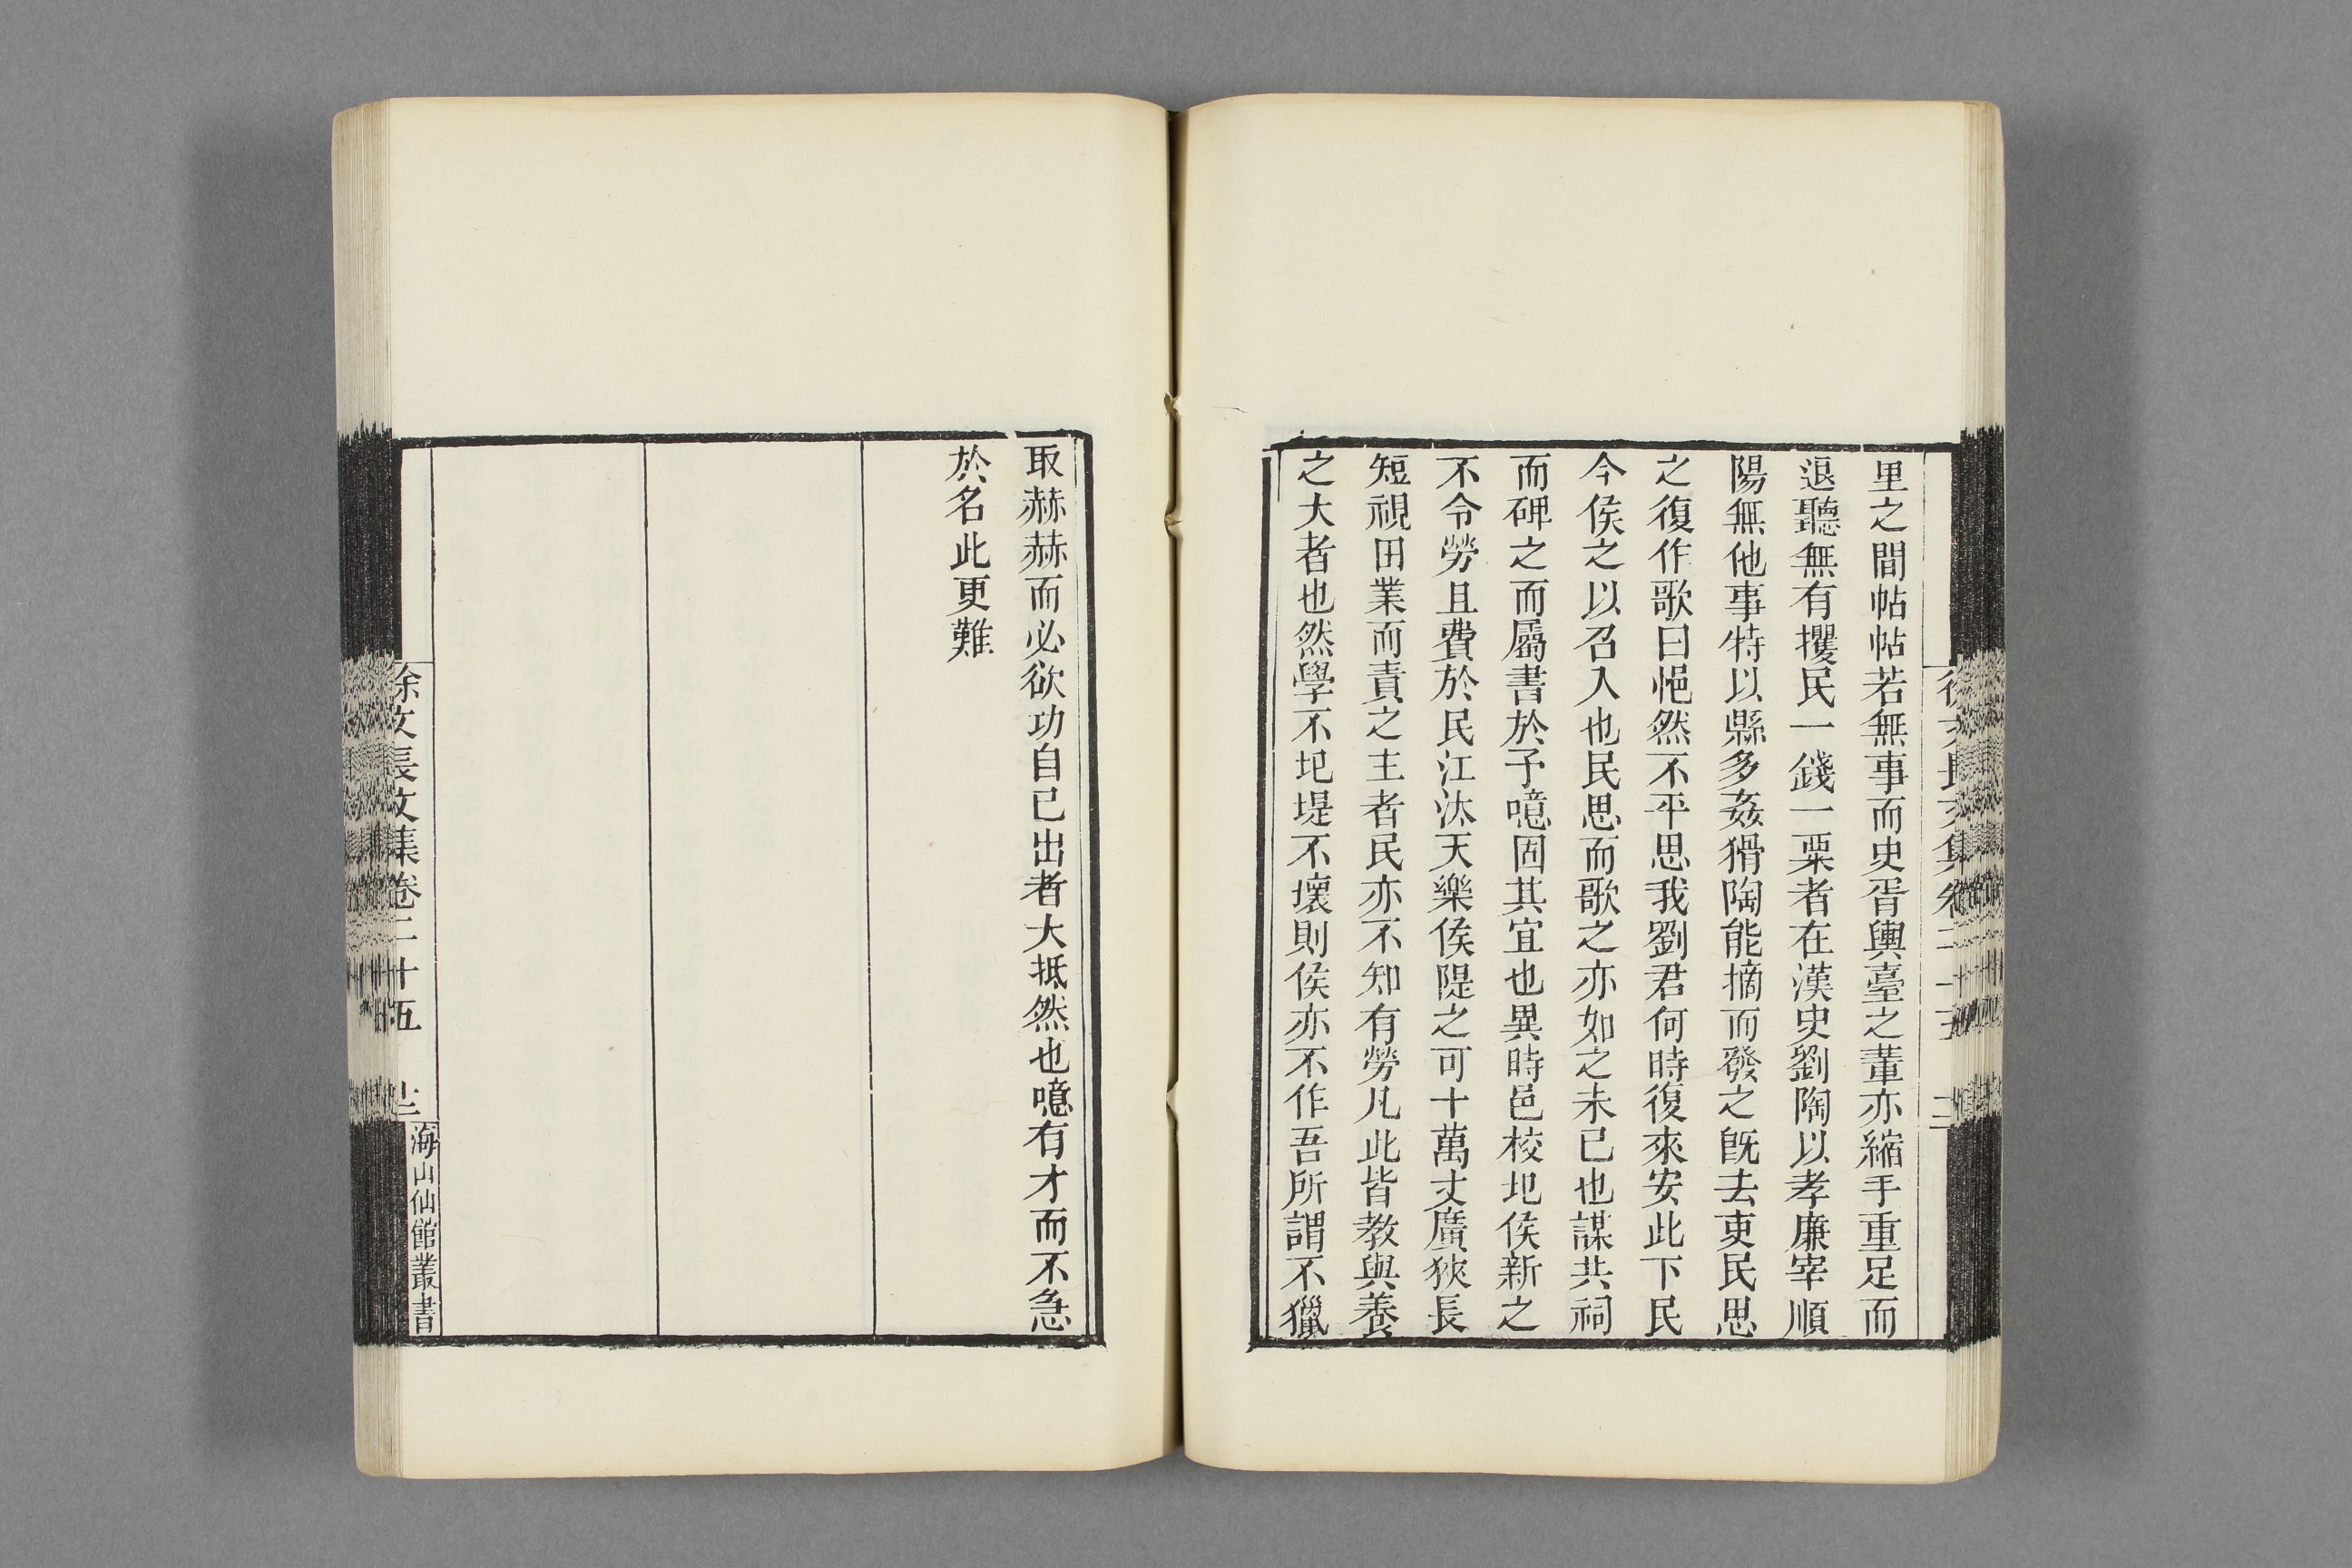 里之間帖帖若無事而史胥輿臺之輩亦縮手重足而
退聽無有攫民一錢一粟者在漢史劉陶以孝廉宰順
陽無他事特以縣多姦猾陶能摘而發之旣去吏民思
之復作歌曰悒然不平思我劉君何時復來安此下民
今侯之以召入也民思而歌之亦如之未已也謀共祠
而碑之而屬書於予噫固其宜也異時邑校圯侯新之
不令勞且費於民江汰天樂侯隄之可十萬丈廣狹長
短視田業而責之主者民亦不知有勞凡此皆教與養
之大者也然學不圯堤不壞則侯亦不作吾所謂不獵
取赫赫而必欲功自己出者大抵然也噫有才而不急
於名此更難
徐文長文集卷二十五
海山仙館叢書